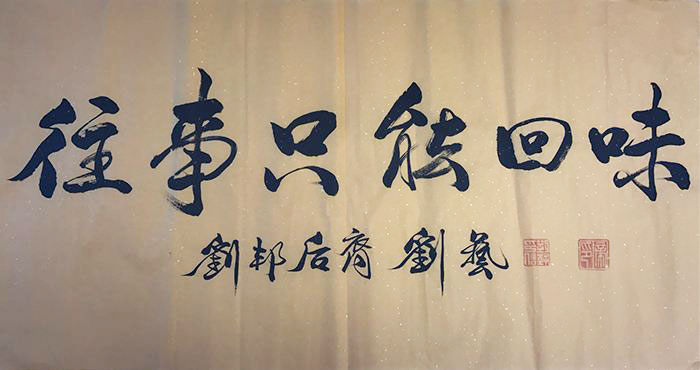 往事只能回味
劉邦后裔 劉藝